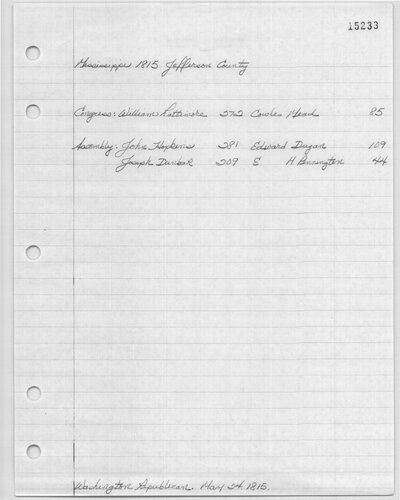 15233
Mississippi 1815 Jefferson County
Congress: William Lattimore 272 Cowles Mead 85
Assembly: John Hopkins 281 Edward Dugan 109
Joseph Dunbar 209 E H Bennington 44
Washington Republican. May 24, 1815.